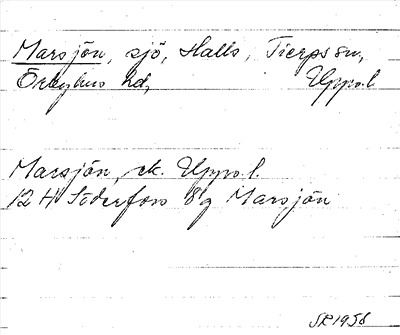 Marsjön, sjö, Halls, Tierps sn,
Örbyhus hd, Upps.l.
Marsjön, ek. Upps.l.
12 H Söderfors 8 g Marsjön
SR 1958